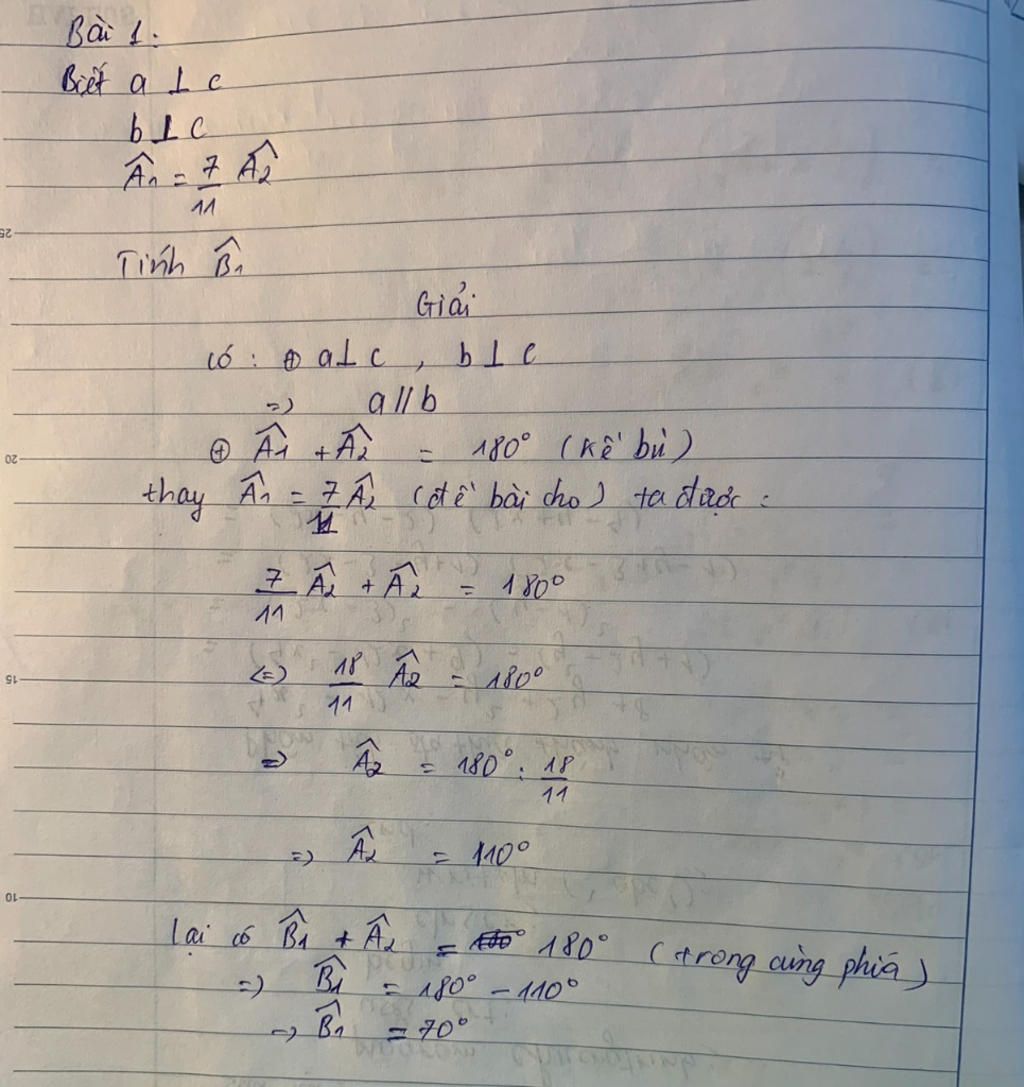 Bài 1:
Biết a ⊥ c
b ⊥ c
Â₁ = 7/11 Â₂
Tính B̂₁
Giải
có : ⊕ a ⊥ c , b ⊥ c
=> a // b
⊕ Â₁ + Â₂ = 180° (kề bù)
thay Â₁ = 7/11 Â₂ (đề bài cho) ta được :
7/11 Â₂ + Â₂ = 180°
<=> 18/11 Â₂ = 180°
=> Â₂ = 180° : 18/11
=> Â₂ = 110°
lại có B̂₁ + Â₂ = 180° (trong cùng phía)
=> B̂₁ = 180° - 110°
=> B̂₁ = 70°
25
20
15
10